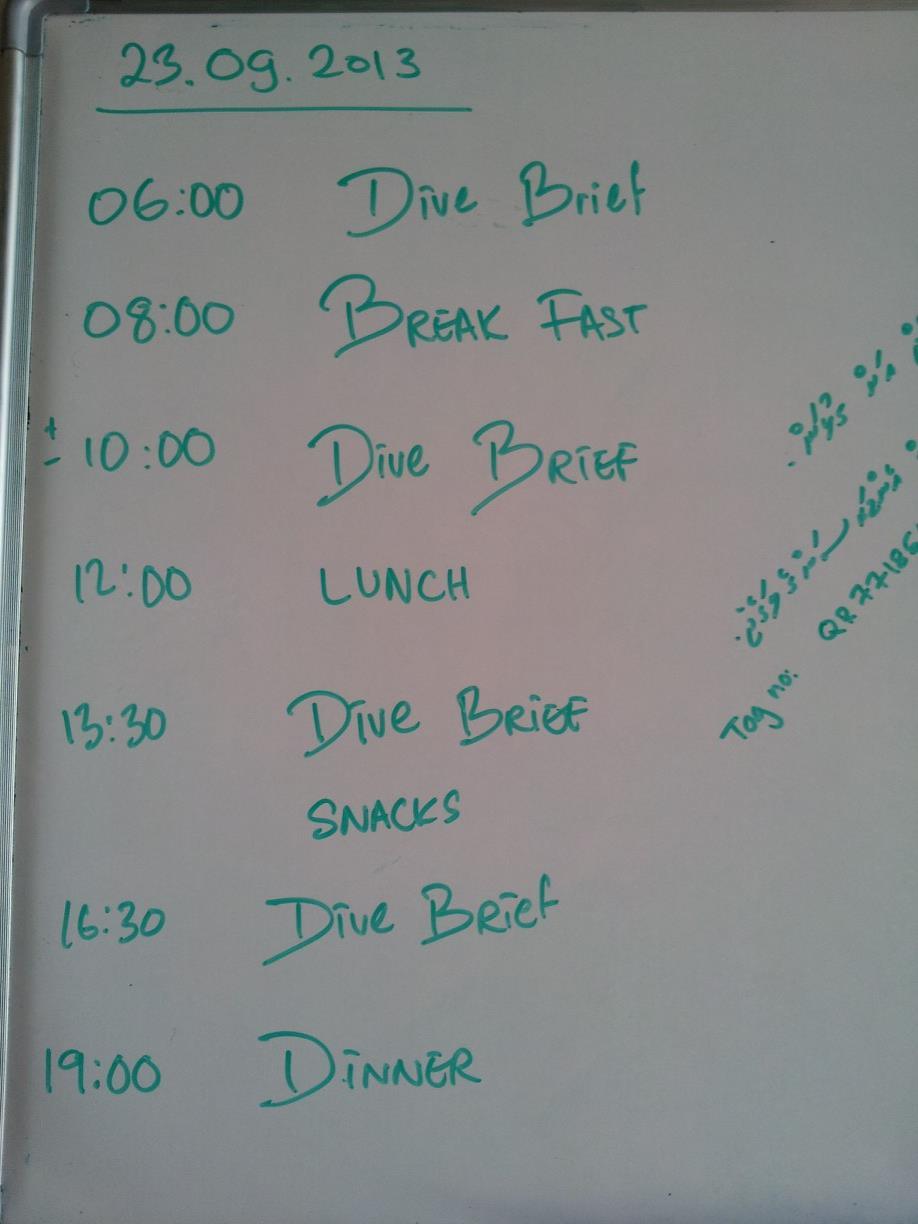 23.09.2013
06:00 Dive Brief
08:00 BREAK FAST
± 10:00 Dive BRIEF
12:00 LUNCH
13:30 Dive BRIEF
SNACKS
16:30 Dive Brief
19:00 DINNER
Tag no: QR77185